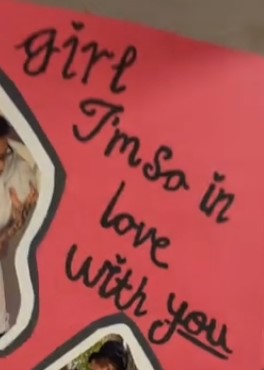 girl
I'm So in
love
with you